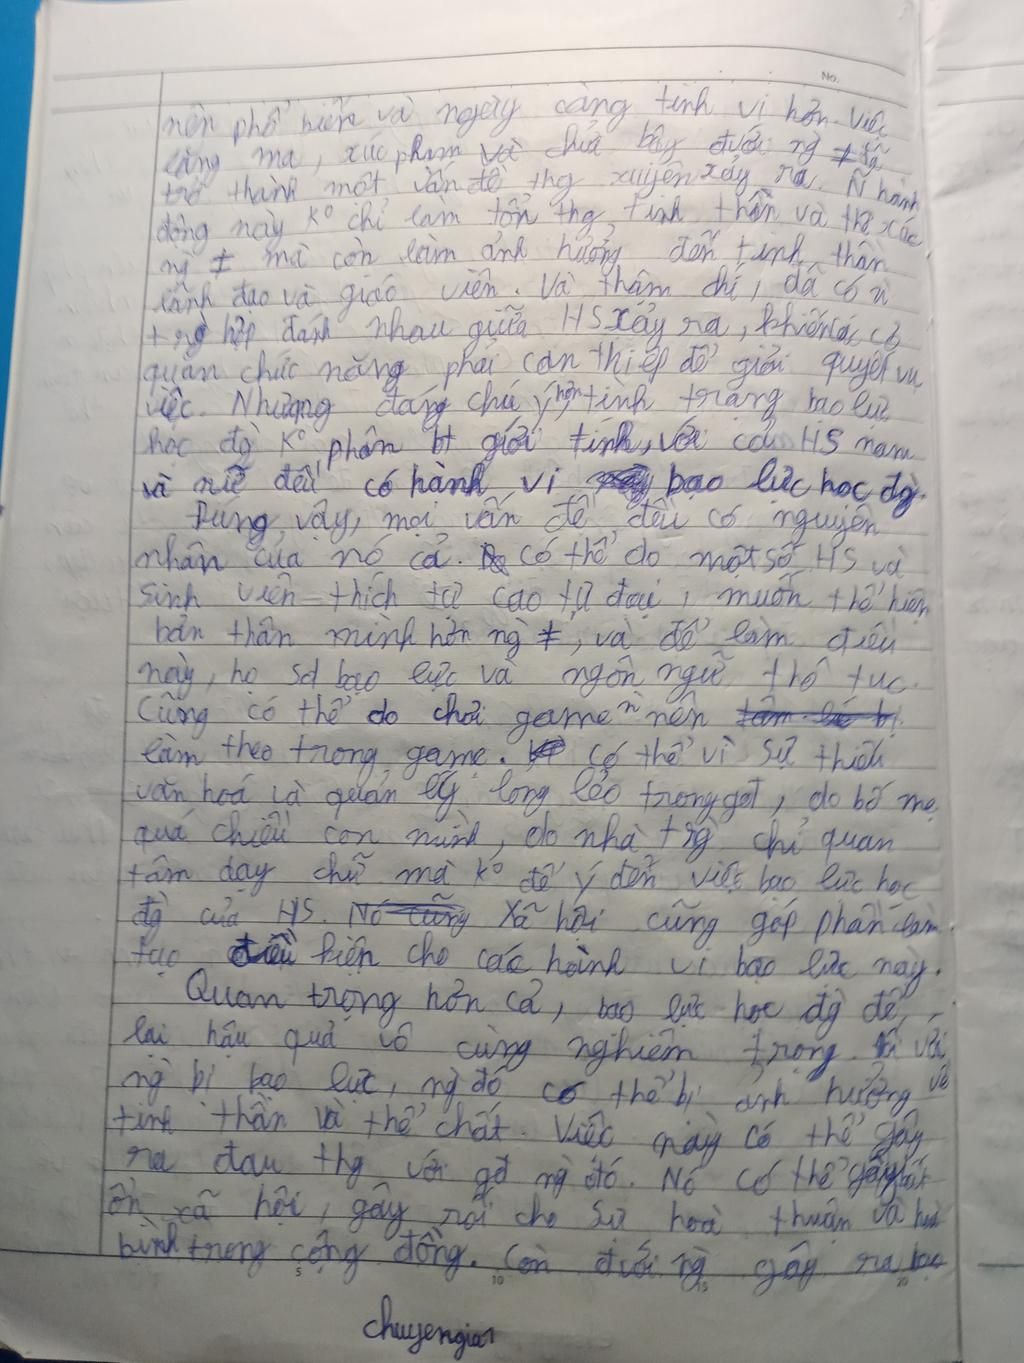 No.
nên phổ biến và ngày càng tinh vi hơn. Việc
lăng mạ, xúc phạm và chửi bậy đưới ng ≠ đã
trở thành một vấn đề thg xuyên xảy ra. Ñ hành
động này Kº chỉ làm tổn thg tinh thần và thể xác
ng ≠ mà còn làm ảnh hưởng đến tinh thần
lãnh đạo và giáo viên. Và thậm chí, đã có ñ
trg hợp đánh nhau giữa HS xảy ra, khiến các cơ
quan chức năng phải can thiệp để giải quyết vụ
việc. Nhưng đáng chú ý hơn, tình trạng bạo lực
học đg Kº phân bt giới tính, với cả HS nam
và nữ đều có hành vi bạo lực học đg.
Đúng vậy, mọi vấn đề đều có nguyên
nhân của nó cả. Có thể do một số HS và
sinh viên thích tự cao tự đại, muốn thể hiện
bản thân mình hơn ng ≠, và để làm điều
này, họ sd bạo lực và ngôn ngữ thô tục.
Cũng có thể do chơi game ñ nên
làm theo trong game. Có thể vì sự thiếu
văn hoá và quản lý lỏng lẻo trong gđ, do bố mẹ
quá chiều con mình, do nhà trg chỉ quan
tâm dạy chữ mà Kº để ý đến việc bạo lực học
đg của HS. Xã hội cũng góp phần làm
tạo điều kiện cho các hành vi bạo lực này.
Quan trọng hơn cả, bạo lực học đg để
lại hậu quả vô cùng nghiêm trọng. Với
ng bị bạo lực, ng đó có thể bị ảnh hưởng về
tinh thần và thể chất. Việc này có thể gây
ra đau thg với gđ ng đó. Nó có thể gây bất
ổn xã hội, gây rối cho sự hoà thuận và hoà
bình trong cộng đồng. Còn đưới ng gây ra bạo
5 10 15 20
chuyengia1